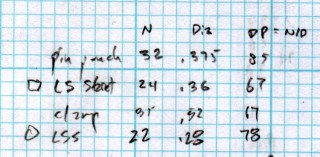 N Dia DP = N/D
pin pinch 32 .375 85
LS Short 24 .36 67
clamp
LSS 22 .28 78